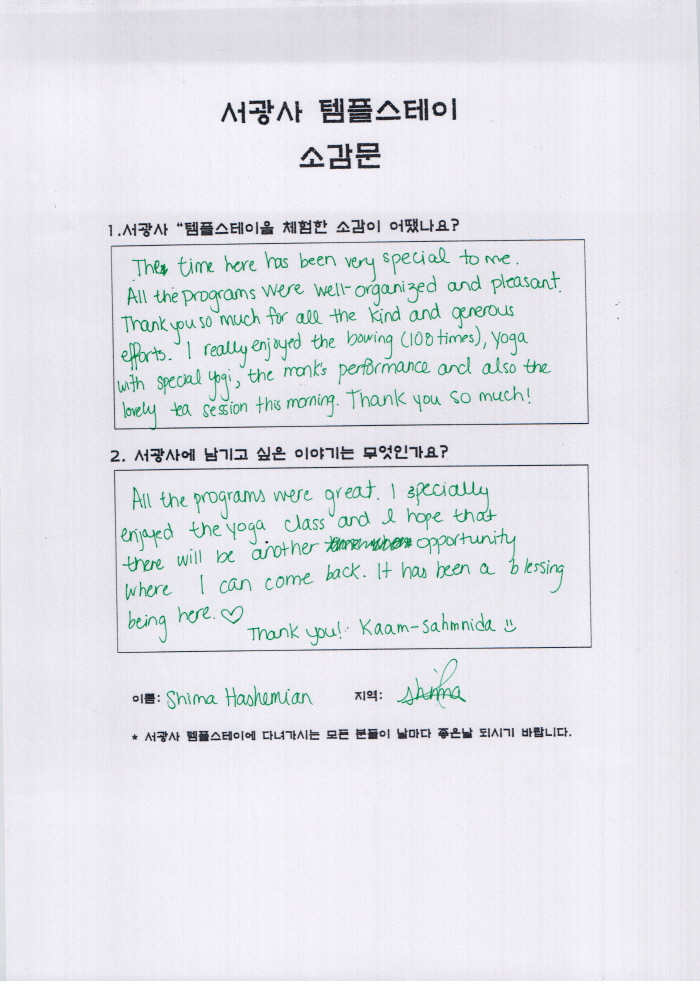 서광사 템플스테이
소감문
1.서광사 “템플스테이을 체험한 소감이 어땠나요?
The time here has been very special to me.
All the programs were well-organized and pleasant.
Thank you so much for all the kind and generous
efforts. I really enjoyed the bowing (108 times), yoga
with special yogi, the monk's performance and also the
lovely tea session this morning. Thank you so much!
2. 서광사에 남기고 싶은 이야기는 무엇인가요?
All the programs were great. I specially
enjoyed the yoga class and I hope that
there will be another opportunity
where I can come back. It has been a blessing
being here. ♡
Thank you! Kaam-sahmnida
이름: Shima Hashemian 지역: Shima
* 서광사 템플스테이에 다녀가시는 모든 분들이 날마다 좋은날 되시기 바랍니다.